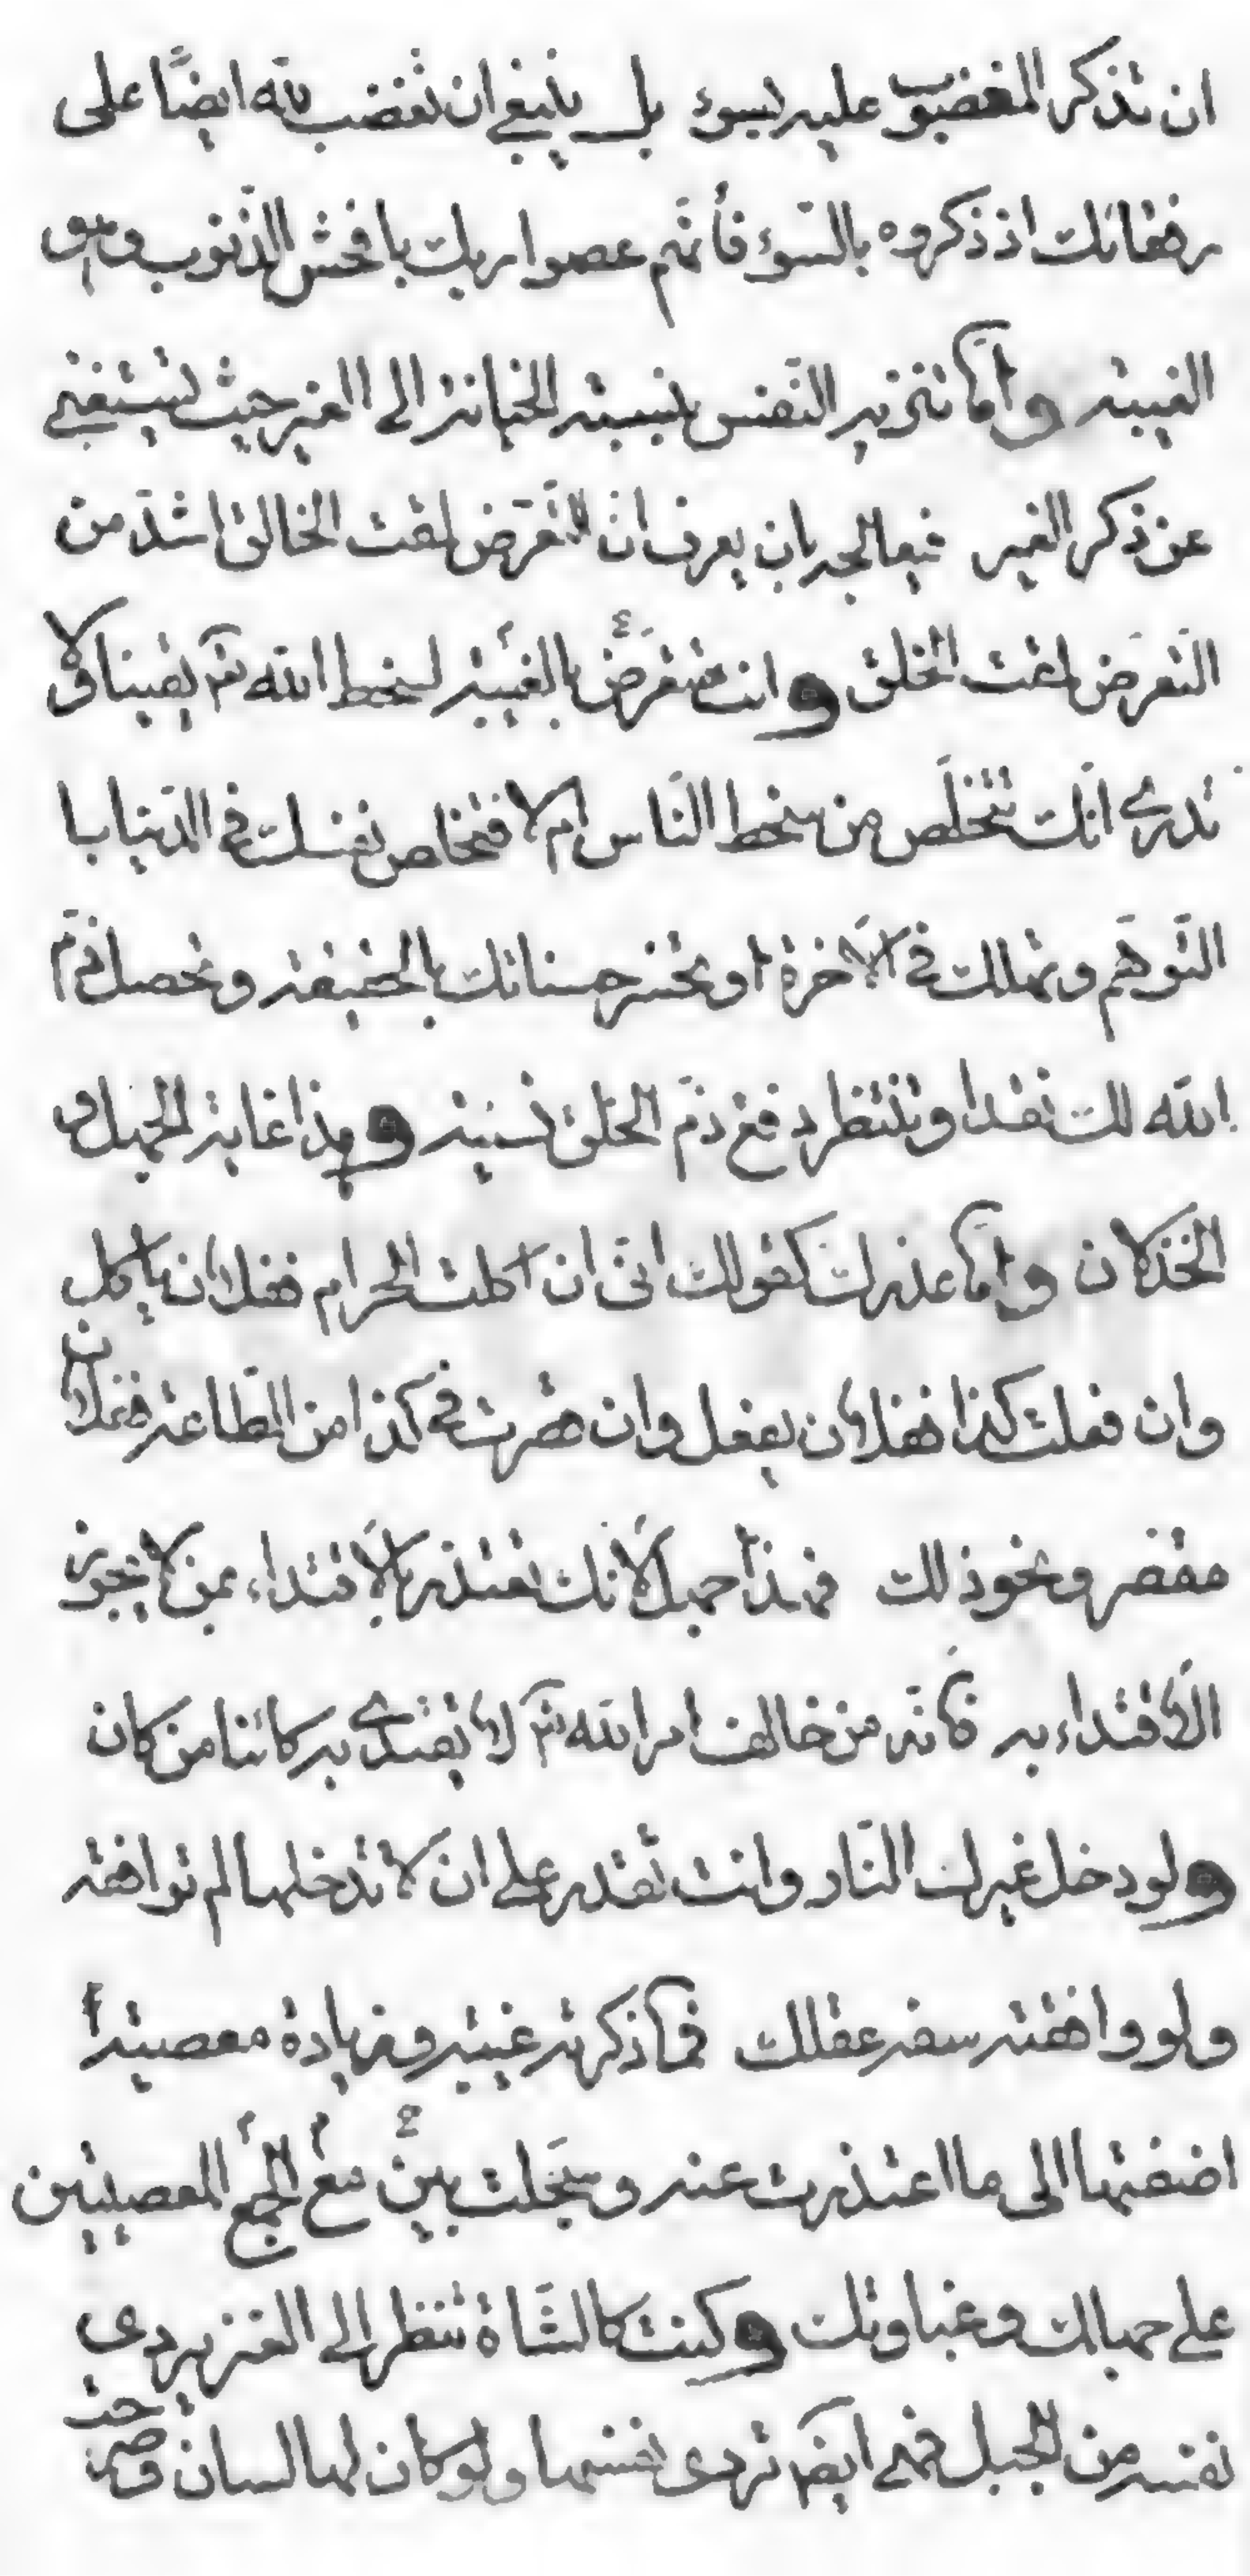 ان تذكر المغضوب عليه بسوء بل ينبغي ان تغضب لله ايضًا على
رفقائك اذ ذكروه بالسّوء فأنّهم عصوا ربك بافحش الذّنوب وهو
الغيبة وامّا تنزيه النّفس بنسبة الخيانة الى الغير حيث تستغني
عن ذكر الغير فيعالجه بان يعرف انّ التّعرّض لمقت الخالق اشدّ من
التّعرّض لمقت الخلق وانت متعرّض بالغيبة لسخط الله تع يقينا ولا
تدري انّك تتخلّص من سخط النّاس ام لا فتخلص نفسك في الدّنيا با
التّوهّم وتهلك في الآخرة او تخسر حسناتك بالحقيقة وتحصل ذمّ
الله لك نقدا وتنتظر دفع ذمّ الخلق نسية وهذا غاية الجهل و
الخذلان وامّا عذرك كقولك انّى ان اكلت الحرام ففلان يأكل
وان فعلت كذا ففلان يفعل وان قصرت في كذا من الطّاعة ففلان
مقصر ونحو ذلك فهذا جهل لأنك تعتذر بالاقتداء بمن لا يجوز
الاقتداء به فانّه من خالف امر الله تع لا يقتدي به كائنا من كان
ولو دخل غيرك النّار وانت تقدر على ان لا تدخلها لم توافقه
ولو وافقته سفه عقلك فما ذكرته غيبة وزيادة معصية
اضفتها الى ما اعتذرت عنه وسجّلت بين مع الجمع المعصيتين
على جهالك وغباوتك وكنت كالشّاة تنظر الى العنز يردى
نفسه من الجبل فهي ايضا تردى نفسها ولو كان لها لسان وصرحت